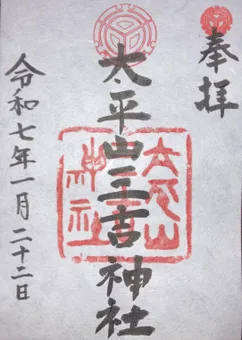 奉拝
太平山三吉神社
令和七年一月二十二日
太平山
三吉
神社